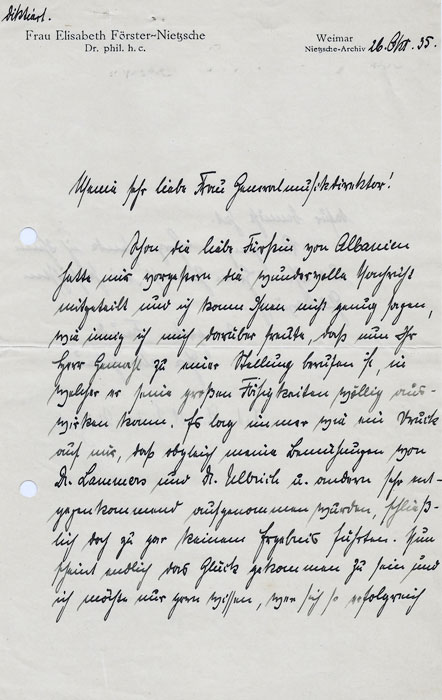 Diktiert.
Frau Elisabeth Förster-Nietzsche
Dr. phil. h. c.
Weimar
Nietzsche-Archiv 26. Okt. 35.
Meine sehr liebe Frau Generalmusikdirektor!
Schon die liebe Fürstin von Albanien
hatte mir vorgestern die wundervolle Nachricht
mitgeteilt und ich kann Ihnen nicht genug sagen,
wie innig ich mich darüber freute, daß nun Ihr
Herr Gemahl zu einer Stellung berufen ist, in
welcher er seine großen Fähigkeiten völlig aus-
wirken kann. Es lag immer wie ein Druck
auf mir, daß obgleich meine Bemühungen von
Dr. Lammers und Dr. Ulbrich u. andern sehr ent-
gegenkommend aufgenommen wurden, schließ-
lich doch zu gar keinem Ergebnis führten. Nun
scheint endlich das Glück gekommen zu sein und
ich möchte nur gern wissen, wer sich so erfolgreich